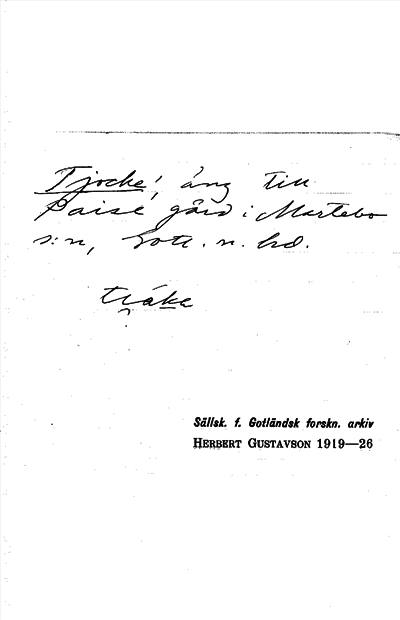 Tjocke, äng till
Paise gård i Martebo
s:n, Gotl. n. hd.
tiåke
Sällsk. f. Gotländsk forskn. arkiv
HERBERT GUSTAVSON 1919—26